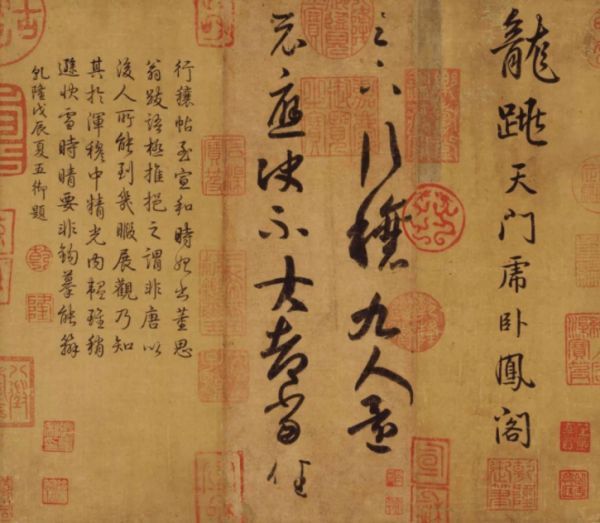 龍跳天門虎卧鳳閣
足下行穰九人還
示應決不大都當佳
行穰帖至宣和時始出董思
翁跋語極推挹之謂非唐以
後人所能到幾暇展觀乃知
其於渾穆中精光內韞雖稍
遜快雪時晴要非鈎摹能辦
乾隆戊辰夏五御題